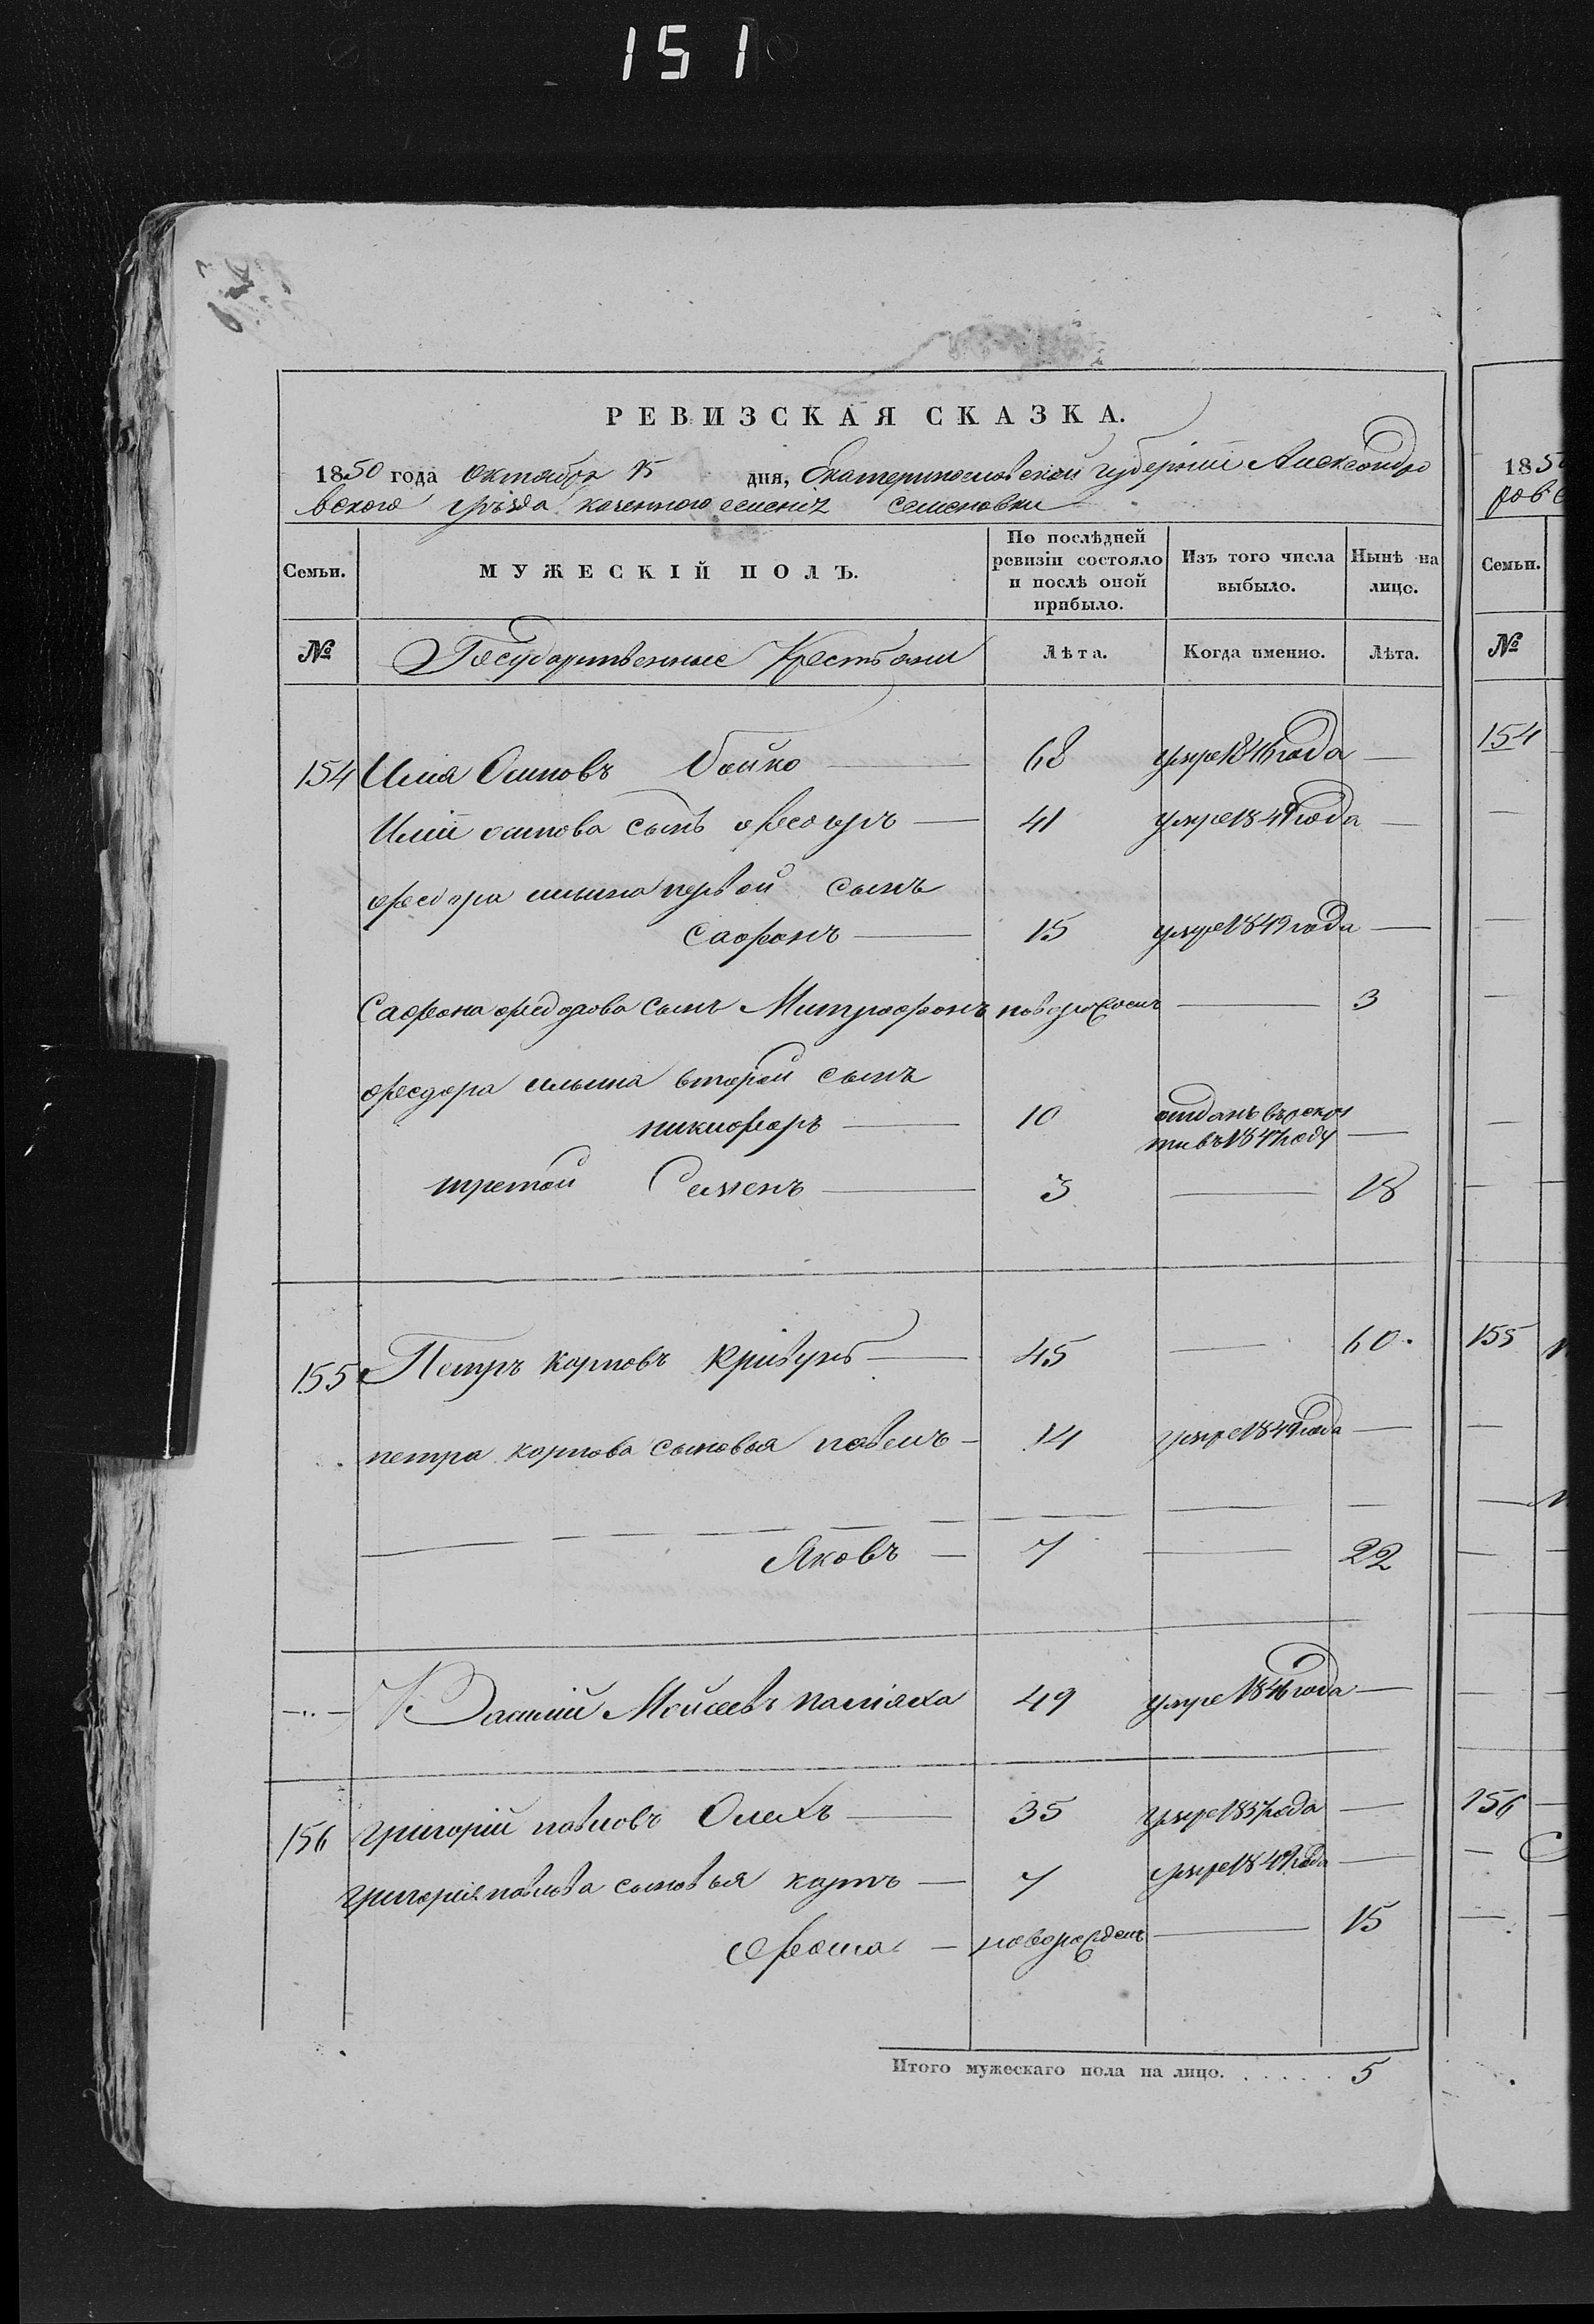 151
РЕВИЗСКАЯ СКАЗКА.
1850 года октября 15 дня, Екатеринославской губернии Александро
вского уѣзда казенного селения семеновки
Семьи.
МУЖЕСКІЙ ПОЛЪ.
По послѣдней ревизіи состояло и послѣ оной прибыло.
Изъ того числа выбыло.
Нынѣ на лицо.
№ Государственные Крестьяни Лѣта. Когда именно. Лѣта.
154 Илия Осиповъ бойко 68 умре 1846 года
Илии осипова сынъ феодоръ 41 умре 1849 года
феодора ильина первой сынъ
Сафонъ 15 умре 1849 года
Сафона федорова сынъ Митрофонъ новорожденъ 3
феодора ильина второй сынъ
никифоръ 10 отданъ въ рекру
ти въ 1847 году
третой Семенъ 3 18
155 Петръ карповъ Кривунъ 45 60
петра карпова сыновья павелъ 14 умре 1849 года
Яковъ 7 22
Василий Мойсеевъ 49 умре 1846 года
156 григорий павловъ Олехъ 35 умре 1837 года
григория павлова сыновья карпъ 7 умре 1849 года
фома новорожденъ 15
Итого мужескаго пола на лицо. 5
185
ров
Семьи.
№
154
155
156